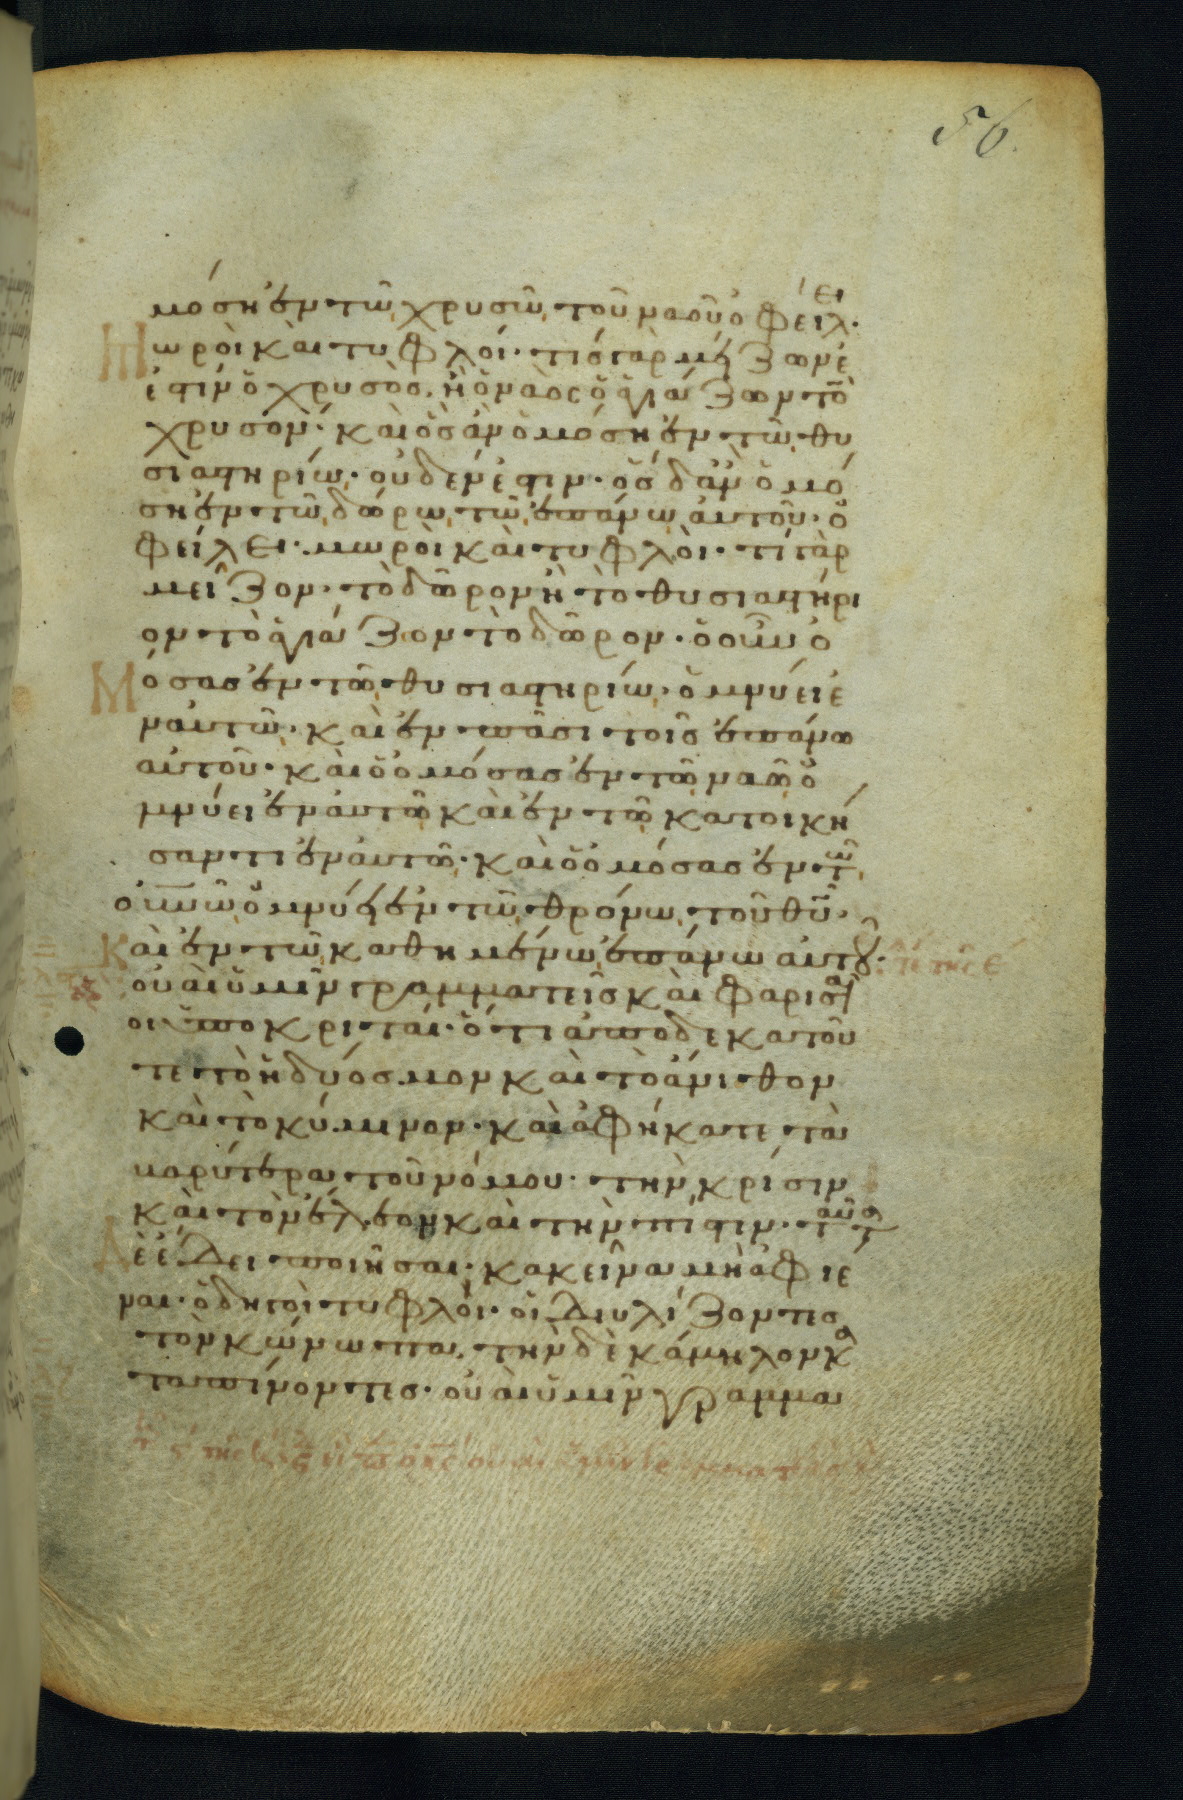 56.
μόση ἐν τῶ χρυσῶ τοῦ ναοῦ ὀφείλει·
Μωροὶ καὶ τυφλοί· τίς γὰρ μείζων ἐ
ἐστιν ὁ χρυσὸς. ἢ ὁ ναὸς ὁ ἁγιάζων τὸ
χρυσόν· καὶ ὃς ἂν ὀμόση ἐν τῶ θυ
σιαστηρίω· οὐδέν ἐστιν· ὃς δ' ἂν ὀμό
ση ἐν τῶ δώρω τῶ ἐπάνω αὐτοῦ· ὀ
φείλει· μωροὶ καὶ τυφλοὶ· τί γὰρ
μεῖζον· τὸ δῶρον ἢ τὸ θυσιαστήρι
ον τὸ ἁγιάζον τὸ δῶρον· ὁ οὖν ὀ
Μόσας ἐν τῶ θυσιαστηρίω· ὀμνύει ἐ
ν αὐτῶ· καὶ ἐν πᾶσι τοῖς ἐπάνω
αὐτοῦ· καὶ ὁ ὀμόσας ἐν τῶ ναῶ ὀ
μνύει ἐν αὐτῶ καὶ ἐν τῶ κατοική
σαντι ἐν αὐτῶ· καὶ ὁ ὀμόσας ἐν τῶ
οὐνῶ ὀμνύει ἐν τῶ θρόνω τοῦ θῦ·
Καὶ ἐν τῶ καθημένω ἐπάνω αὐτοῦ·
οὐαὶ ὑμῖν γραμματεῖς καὶ φαρισαῖ
οι ὑποκριταί· ὅτι ἀποδεκατοῦ
τε τὸ ἡδύοσμον καὶ τὸ ἄνιθον
καὶ τὸ κύμινον· καὶ ἀφήκατε τὰ
βαρύτερα τοῦ νόμου· τὴν κρίσιν
καὶ τὸν ἔλεον καὶ τὴν πίστιν· ταῦτα
Δὲ ἔδει ποιῆσαι· κακεῖνα μὴ ἀφιέ
ναι· ὁδηγοὶ τυφλοί· οἱ διυλίζοντες
τὸν κώνωπα, τὴν δὲ κάμηλον κα
ταπίνοντες· οὐαὶ ὑμῖν γραμμα